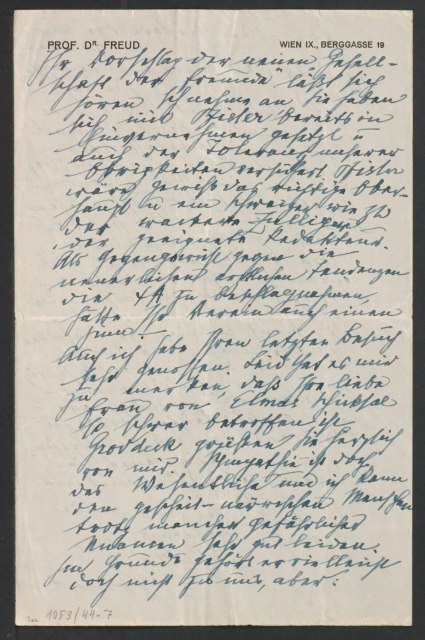 PROF. DR. FREUD
WIEN IX., BERGGASSE 19
Ihr Vorschlag der neuen „Gesell-
schaft der Freunde" läßt sich
hören. Ich nehme an, Sie haben
sich mit Pfister bereits in
Einvernehmen gesetzt u
auch der Toleranz unserer
Obrigkeiten versichert. Pfister
wäre gewiß das richtige Ober-
haupt u ein Schweizer wie zB
der wackere Zulliger
der geeignete Redakteur.
Als Gegengewicht gegen die
neuerlichen ärztlichen Tendenzen
die ΨA zu beschlagnahmen,
hätte Ihr Verein auch einen
Sinn.
Auch ich habe Ihren letzten Besuch
sehr genossen. Leid that es mir
zu merken, daß Ihre liebe
Frau von Elmas Schicksal
so schwer betroffen ist.
Groddeck grüßen Sie herzlich
von mir. Sympathie ist doch
das Wesentliche und ich kann
den gescheit-närrischen Menschen
trotz mancher gefährlicher
Nuancen sehr gut leiden.
Im Grunde gehört er vielleicht
doch nicht zu uns, aber:
1053/44-7